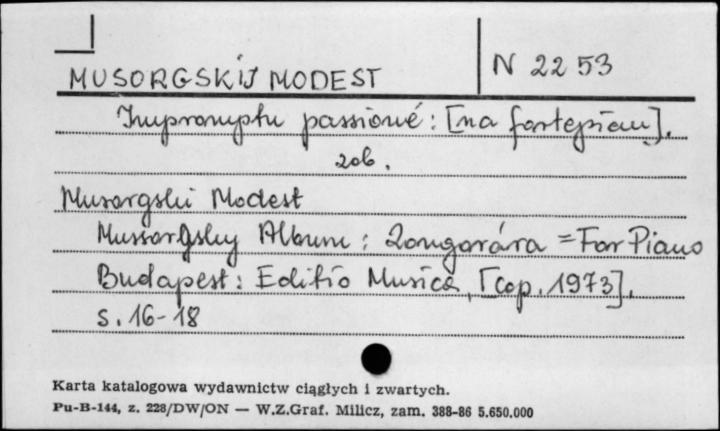 MUSORGSKIJ MODEST
N 2253
Impromptu passioné : [na fortepian].
zob.
Musorgski Modest
Mussorgsky Album : Zongorára = For Piano
Budapest : Editio Musica, [cop. 1973].
s. 16-18
Karta katalogowa wydawnictw ciągłych i zwartych.
Pu-B-144, z. 228/DW/ON — W.Z.Graf. Milicz, zam. 388-86 5.650.000